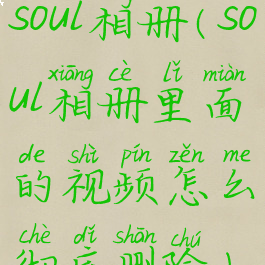 soul相册(so
xiāng cè lǐ miàn
ul相册里面
de shì pín zěn me
的视频怎么
chè dǐ shān chú
彻底删除)